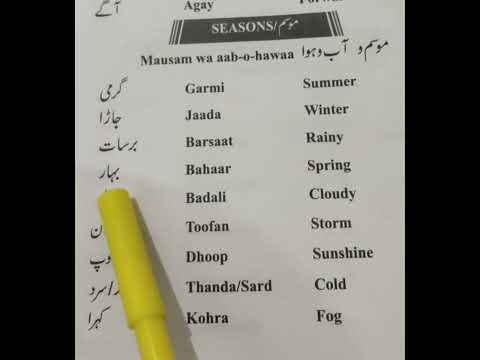 آگے Agay
SEASONS/موسم
Mausam wa aab-o-hawaa موسم و آب و ہوا
گرمی Garmi Summer
جاڑا Jaada Winter
برسات Barsaat Rainy
بہار Bahaar Spring
Badali Cloudy
Toofan Storm
Dhoop Sunshine
Thanda/Sard Cold
کہرا Kohra Fog